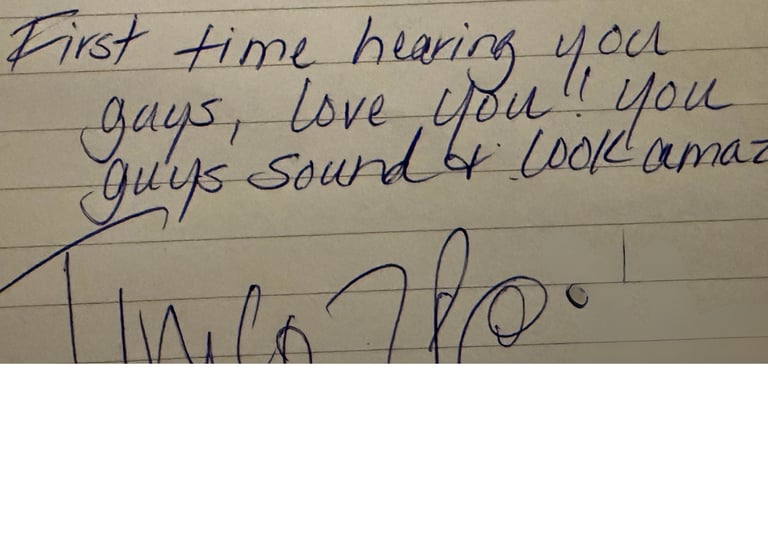 First time hearing you
guys, love you!! you
guys sound & look amaz